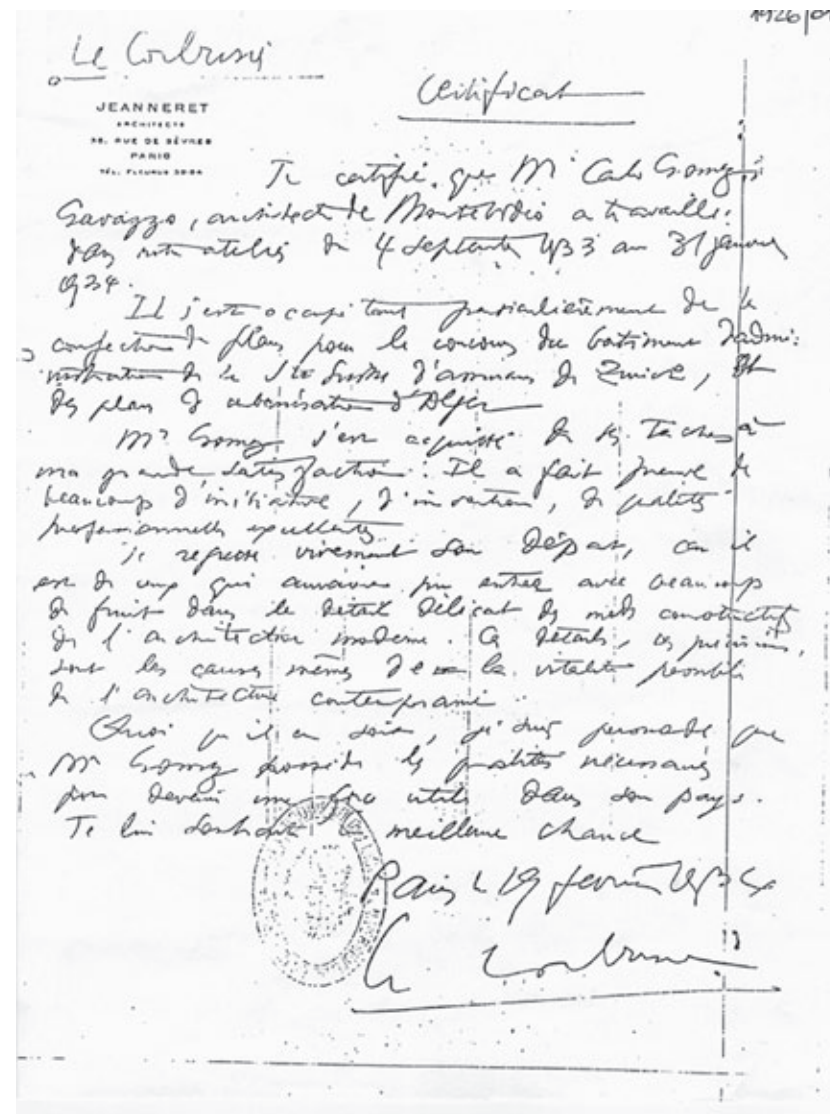 1926/0
Le Corbusier
Certificat
JEANNERET
ARCHITECTE
35, RUE DE SÈVRES
PARIS
TÉL. FLEURUS
Je certifie que Mr Carlos Gomez
Gavazzo, architecte de Montevideo a travaillé
dans notre atelier du 4 septembre 1933 au 31 janvier
1934.
Il s'est occupé tout particulièrement de la
confection de plans pour le concours du batiment d'admi-
nistration de la Sté Suisse d'assurances de Zurich, et
des plans d'urbanisation d'Alger
Mr Gomez s'est acquitté de ses taches à
ma grande satisfaction. Il a fait preuve de
beaucoup d'initiative, d'invention, de qualités
professionnelles excellentes
je regrette vivement son départ, car il
est de ceux qui auraient pu entrer avec beaucoup
de fruit dans le détail délicat des constructifs
de l'architecture moderne. Ces détails, ces précisions,
sont les causes mêmes de la vitalité possible
de l'architecture contemporaine
Quoi qu'il en soit, je suis persuadé que
Mr Gomez possède les qualités nécessaires
pour devenir une utile dans son pays.
Je lui souhaite la meilleure chance
Paris le 19 février 1934
Le Corbusier